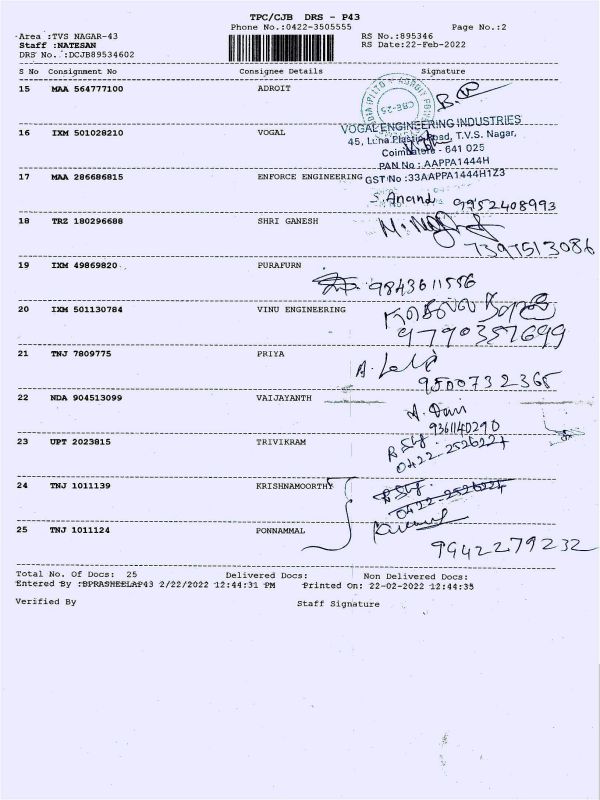 TPC/CJB DRS - P43
Phone No.:0422-3505555 Page No.:2
Area :TVS NAGAR-43 RS No.:895346
Staff :NATESAN RS Date:22-Feb-2022
DRS No. :DCJB89534602
S No Consignment No Consignee Details Signature
15 MAA 564777100 ADROIT
CBE-25
16 IXM 501028210 VOGAL
VOGAL ENGINEERING INDUSTRIES
45, Luna Plastic Road, T.V.S. Nagar,
Coimbatore - 641 025
PAN No : AAPPA1444H
17 MAA 286686815 ENFORCE ENGINEERING GST No :33AAPPA1444H1Z3
S. Anand 9952408993
18 TRZ 180296688 SHRI GANESH
7397513086
19 IXM 49869820 PURAFURN
9843611556
20 IXM 501130784 VINU ENGINEERING
9790357699
21 TNJ 7809775 PRIYA
9500732365
22 NDA 904513099 VAIJAYANTH
9361140290
23 UPT 2023815 TRIVIKRAM
0422 2526227
24 TNJ 1011139 KRISHNAMOORTHY
0422-2526227
25 TNJ 1011124 PONNAMMAL
9942279232
Total No. Of Docs: 25 Delivered Docs: Non Delivered Docs:
Entered By :BPRASHEELAP43 2/22/2022 12:44:31 PM Printed On: 22-02-2022 12:44:35
Verified By Staff Signature